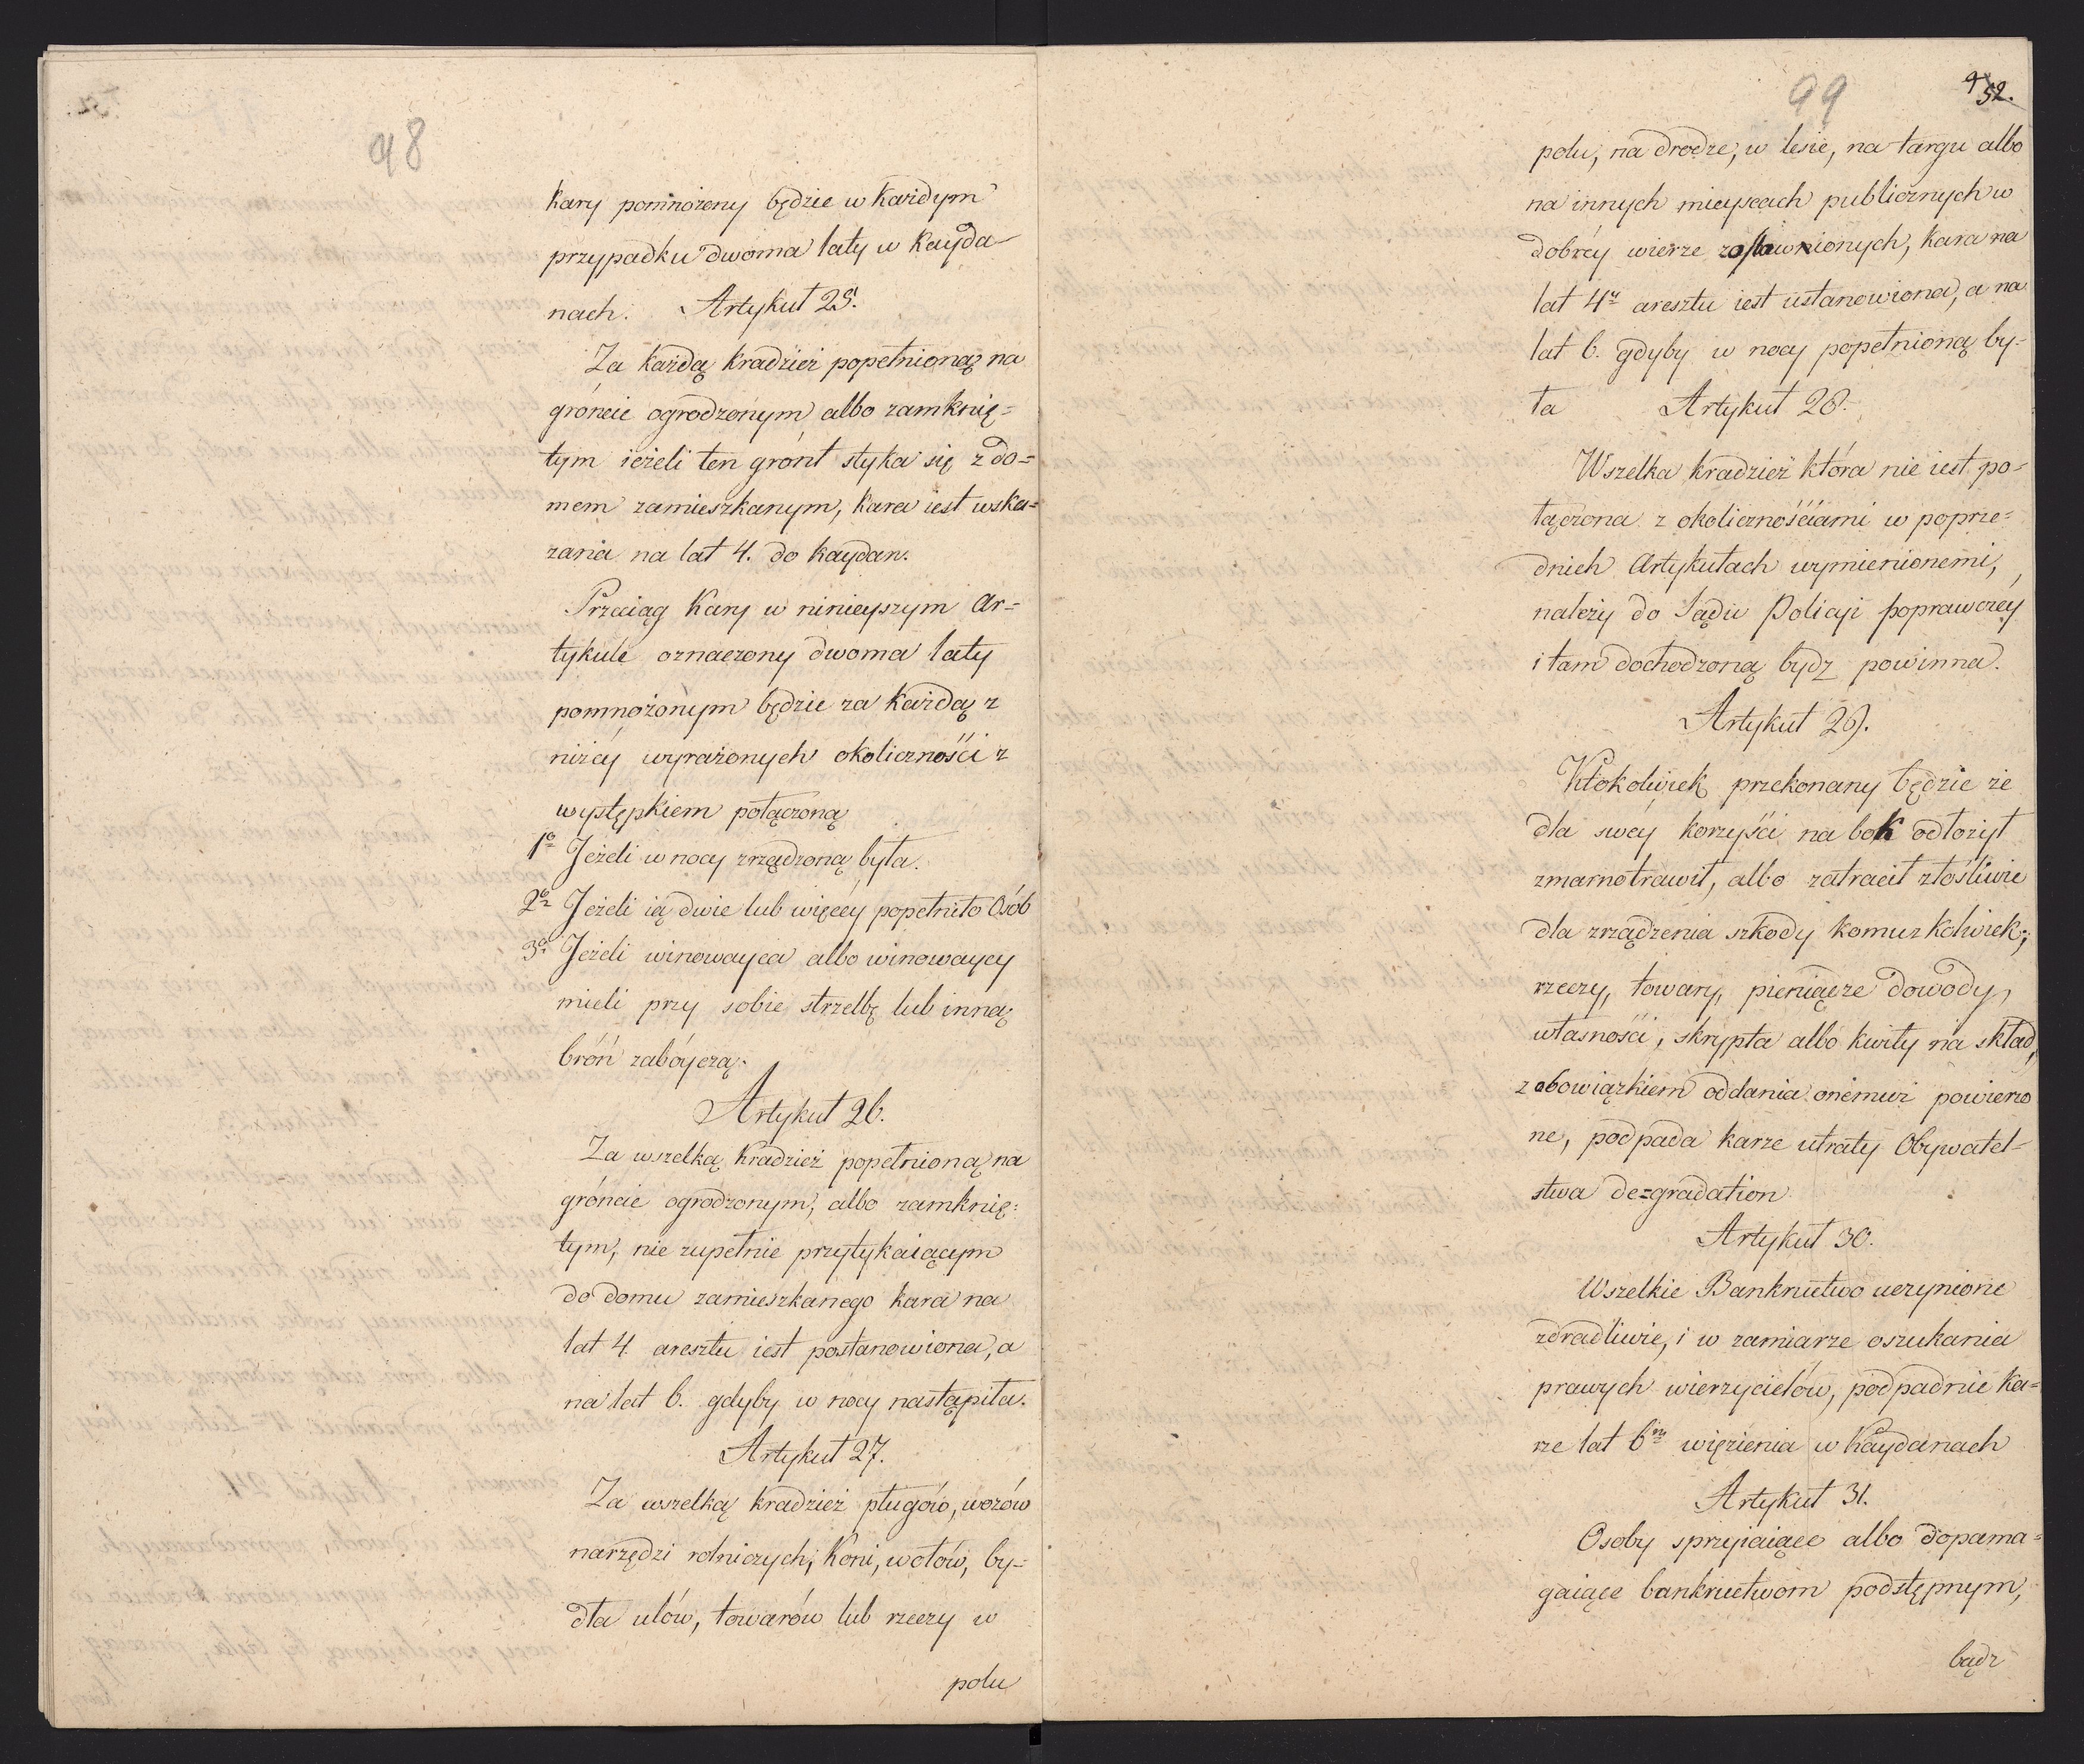 98
kary pomnożony będzie w każdym
przypadku dwoma laty w Kayda-
nach. Artykuł 25.
Za każdą kradzież popełnioną na
gróncie ogrodzonym albo zamknię=
tym ieżeli ten grónt styka się z do=
mem zamieszkanym, kara iest wska=
zania na lat 4. do kaydan.
Przeciąg Kary w ninieyszym Ar=
tykule oznaczony dwoma laty
pomnożonym będzie za każdą z
niżey wyrażonych okoliczności z
występkiem połączoną
1o Jeżeli w nocy zrządzoną była.
2o Jeżeli ią dwie lub więcéy popełniło Osób
3o Jeżeli winowayca albo winowaycy
mieli przy sobie strzelbę lub inną
bróń zabóyczą.
Artykuł 26.
Za wszelką Kradzież popełnioną na
gróncie ogrodzonym, albo zamknię=
tym, nie zupełnie przytykaiącym
do domu zamieszkanego kara na
lat 4 aresztu iest postanowiona, a
na lat 6. gdyby w nocy nastąpiła.
Artykuł 27.
Za wszelką kradzież pługów, wozów
narzędzi rolniczych, Koni, wołów, by-
dła ulów, towarów lub rzeczy w
polu
99
52.
polu, na drodze, w lesie, na targu albo
na innych mieyscach publicznych w
dobréy wierze zostawionych, kara na
lat 4r aresztu iest ustanowiona, a na
lat 6. gdyby w nocy popełnioną by-
ła Artykuł 28.
Wszelka kradzież która nie iest po-
łączona z okolicznościami w poprze=
dnich Artykułach wymienionemi,
należy do Sądu Policyi poprawczey
i tam dochodzoną bydz powinna.
Artykuł 29.
Ktokolwiek przekonany będzie że
dla swéy korzyści na bok odłożył
zmarnotrawił, albo zatracił złośliwie
dla zrządzenia szkody komuzkolwiek,
rzeczy, towary, pieniądze dowody,
własności, skrypta albo kwity na skład,
z obowiązkiem oddania onémuż powierzo
ne, podpada karze utraty Obywatel-
stwa de=gradation
Artykuł 30.
Wszelkie Bankructwo uczynione
zdradliwie, i w zamiarze oszukania
prawych wierzycielów, podpadnie ka=
rze lat 6m więzienia w Kaydanach
Artykuł 31.
Osoby sprzyiaiące albo dopama=
gaiące bankructwom podstępnym,
bądz